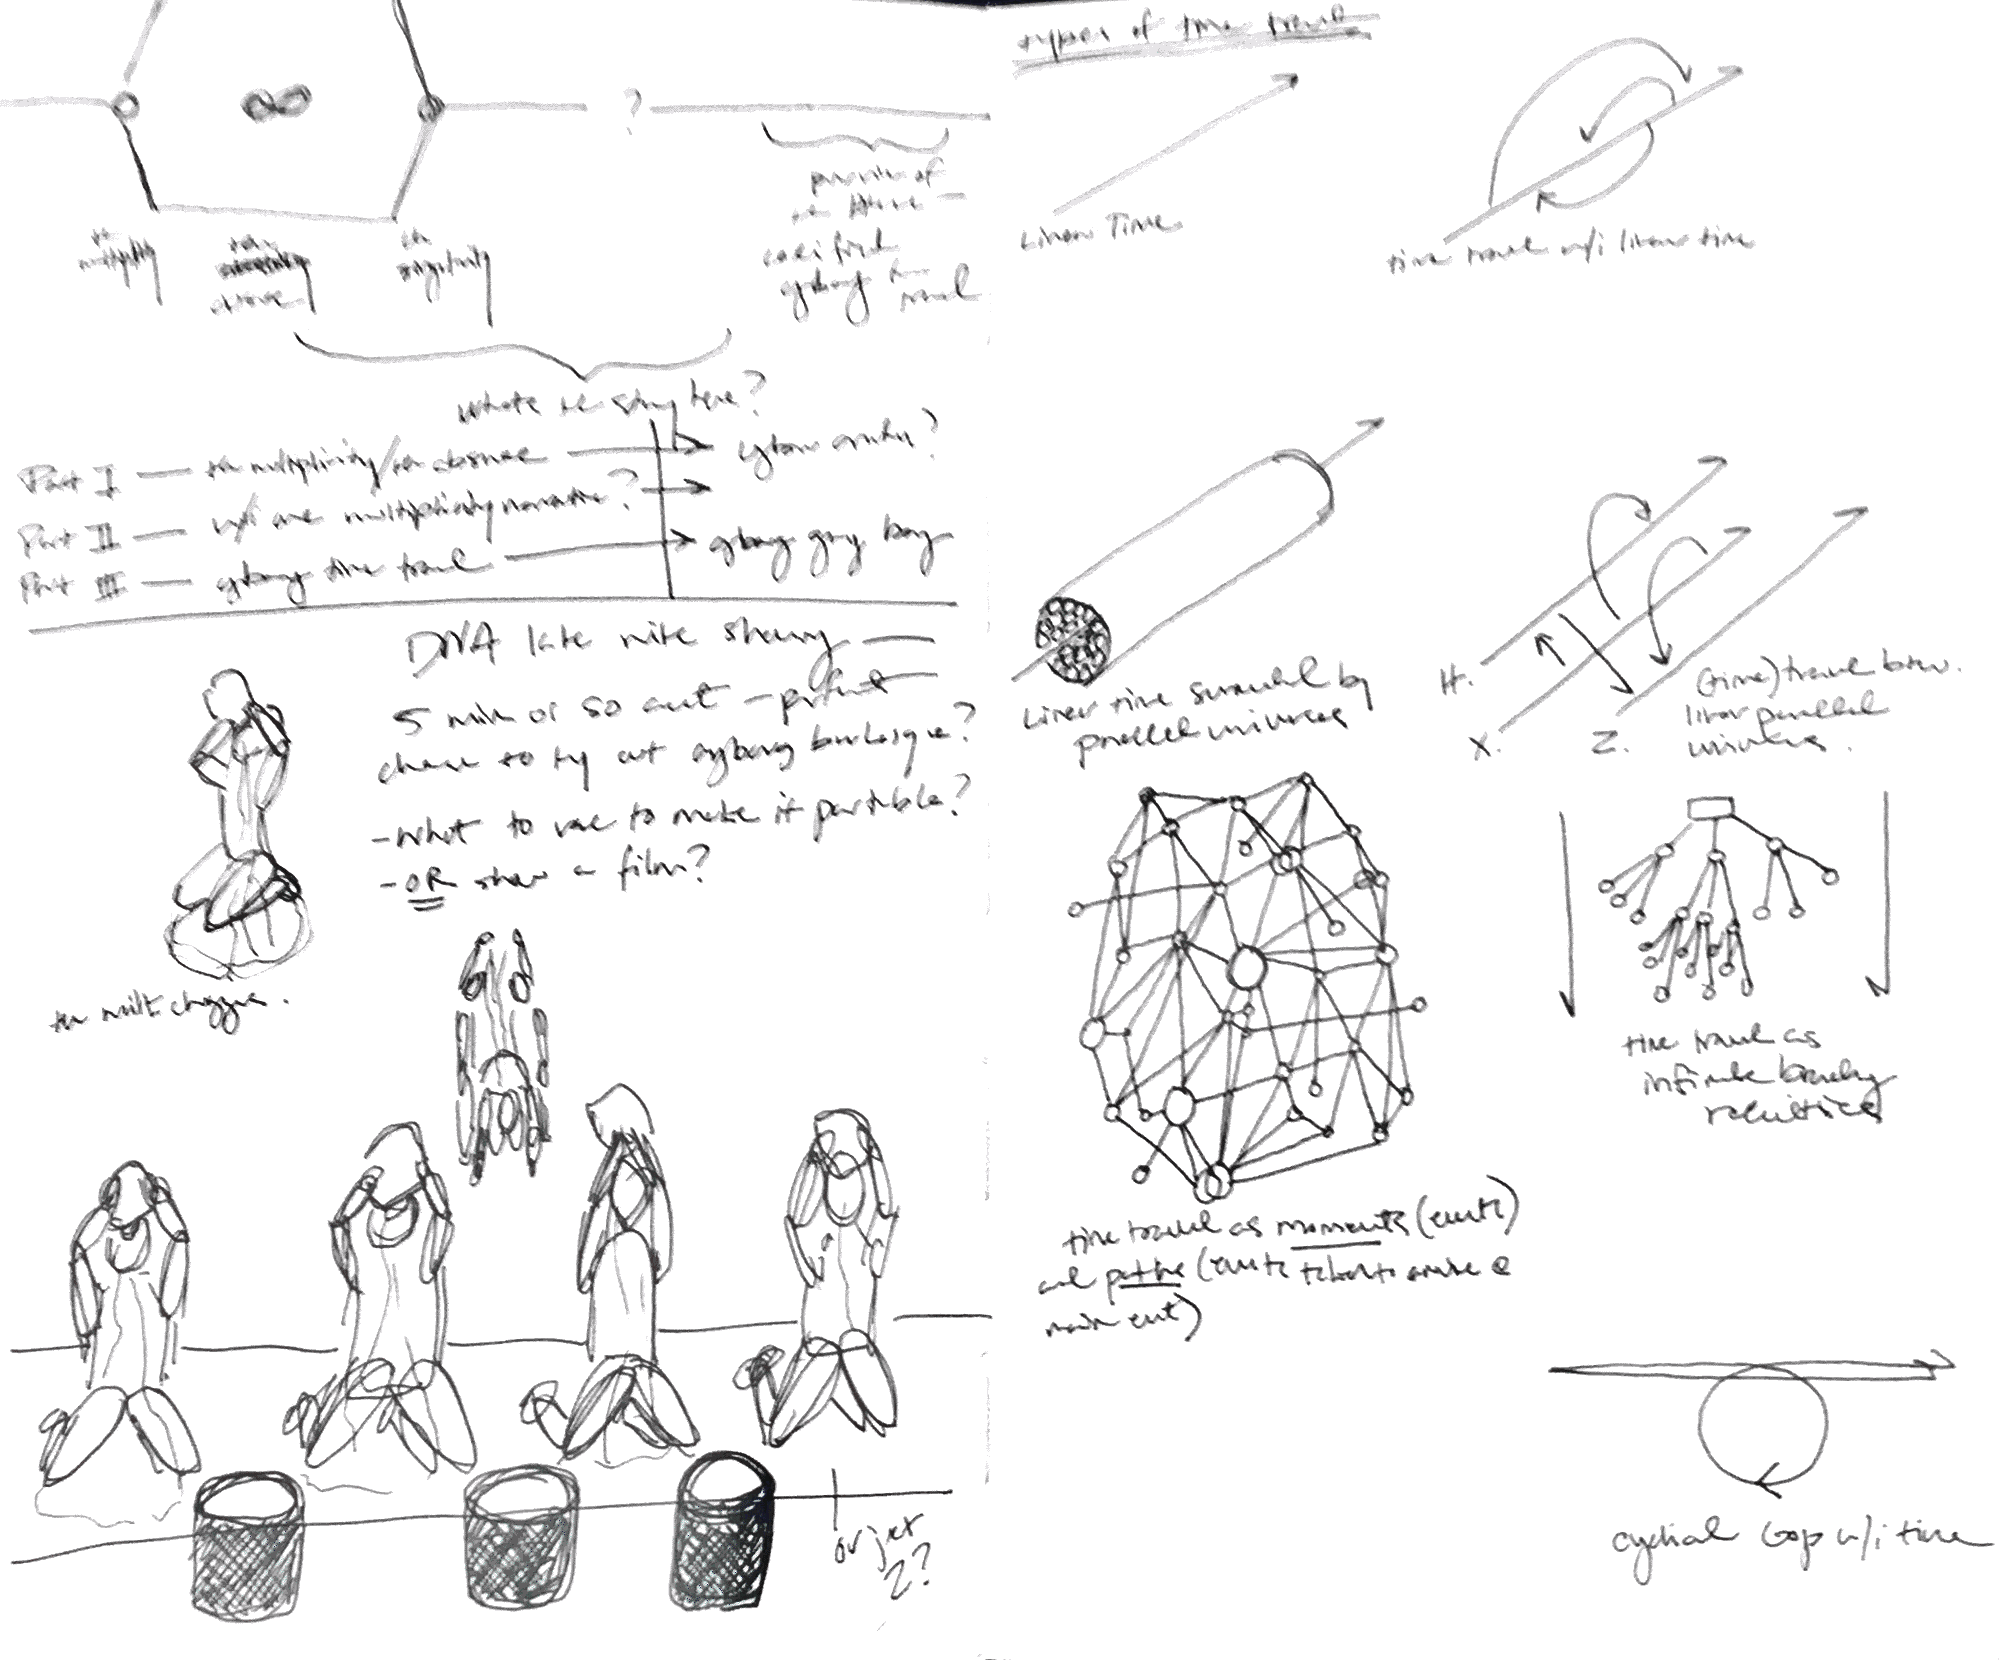 ?
the
multiplicity
the
absence
the
singularity
cyborg
travel
whats the story here?
Part I — the multiplicity/the absence
Part II — w/i one multiplicity narrative?
Part III — cyborg time travel
cyborg gray boy
DNA late nite showing —
5 min or so out — perfect
chance to try out cyborg burlesque?
- What to use to make it portable?
- OR show a film?
the milk chugger.
or just
2?
types of time travel
Linear Time
time travel w/i linear time
Linear time surrounded by
parallel universes
H.
X.
Z.
(time) travel betw.
linear parallel
universes.
time travel as
infinite branching
realities
time travel as moments (events)
and paths (events to arrive @
main event)
cyclical loop w/i time